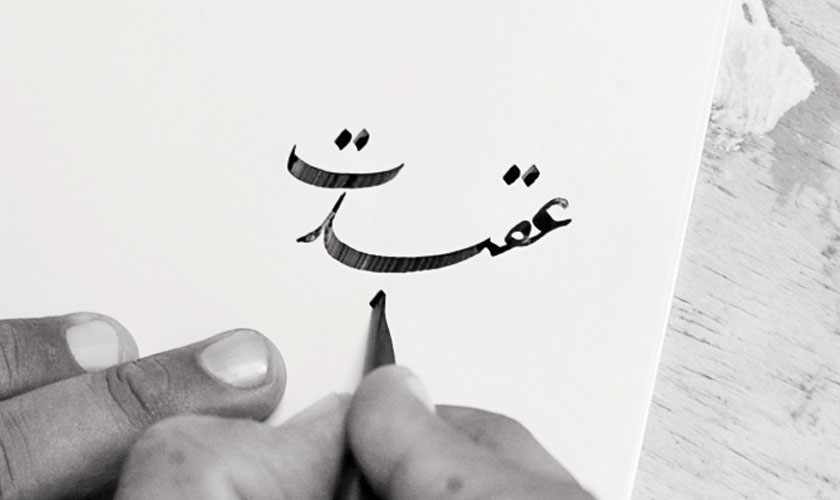 عقیدت